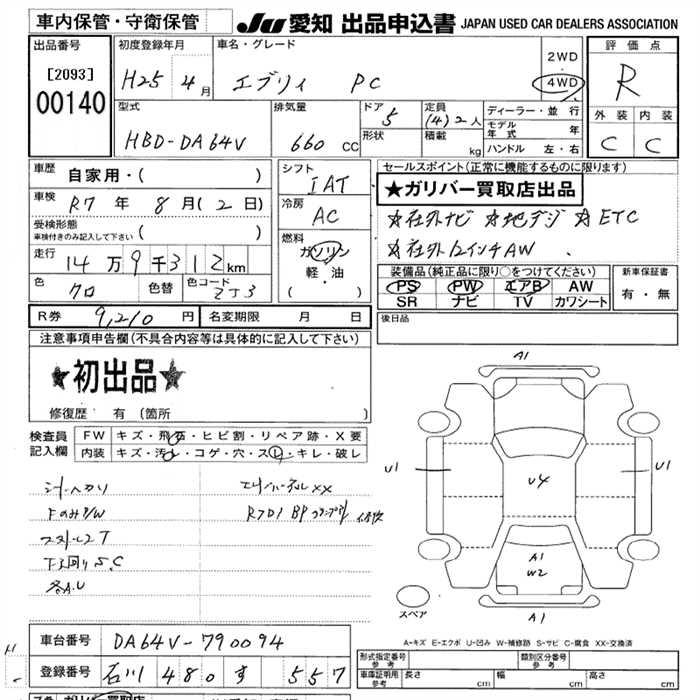 車内保管・守衛保管 JU 愛知 出品申込書 JAPAN USED CAR DEALERS ASSOCIATION
出品番号 初度登録年月 車名・グレード 2WD 評価点
[2093] H25年4月 エブリィ PC 4WD R
00140 型式 排気量 ドア 定員 ディーラー・並行 外装 内装
HBD-DA64V 660cc 5 (4)2人 モデル年式 年 C C
形状 積載 kg ハンドル 左・右
車歴 自家用・( ) シフト セールスポイント(正常に機能するものに限ります)
IAT ★ガリバー買取店出品
車検 R7年8月(2日) 冷房 ☆社外ナビ ☆地デジ ☆ETC
受検形態 AC ☆社外12インチAW
車検付きのみ記入して下さい ( )
走行 14万9千312km 燃料 ガソリン 装備品(純正品に限り○をつけてください) 新車保証書
軽・油 PS PW エアB AW 有・無
色 クロ 色替 色コード ZJ3 ( ・ ) SR ナビ TV カワシート
R券 9,210円 名変期限 月 日 後日品
注意事項申告欄(不具合内容等は具体的に記入して下さい)
★初出品★
修復歴 有(箇所 )
A1
検査員 FW キズ・飛石・ヒビ割・リペア跡・X要
記入欄 内装 キズ・汚レ・コゲ・穴・スレ・キレ・破レ
U1 U4 U1
XX
下回りS.C
各A.U
A1
W2
スペア A1
A-キズ E-エクボ U-凹み W-補修跡 S-サビ C-腐食 XX-交換済
車台番号 DA64V-790094
登録番号 石川 480 す 557
形式指定番号 参考 類別区分番号 参考
車庫証明用 参考 長さ cm 幅 cm 高さ cm